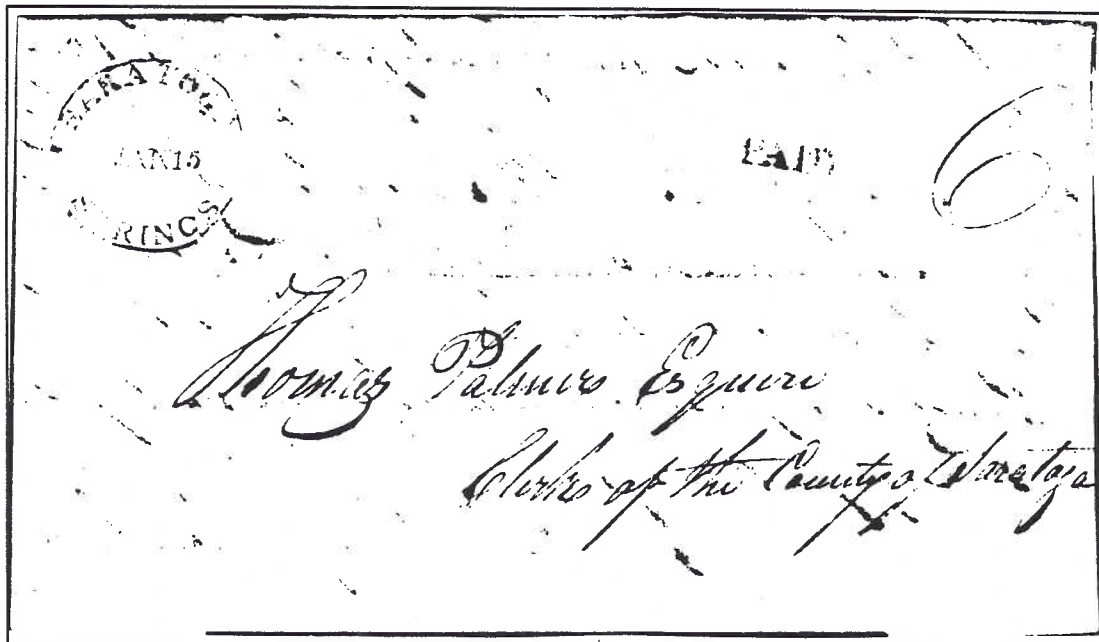 SARATOGA
JAN 15
SPRINGS
PAID
6
Thomas Palmer Esquire
Clerk of the County of Saratoga